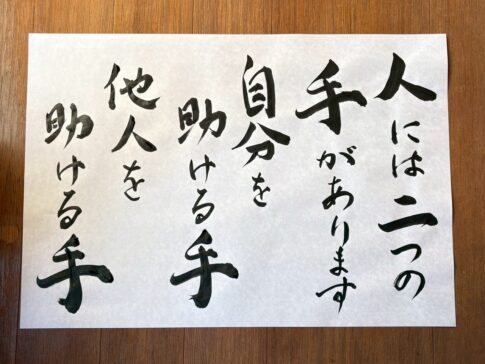 人には二つの
手があります
自分を
助ける手
他人を
助ける手